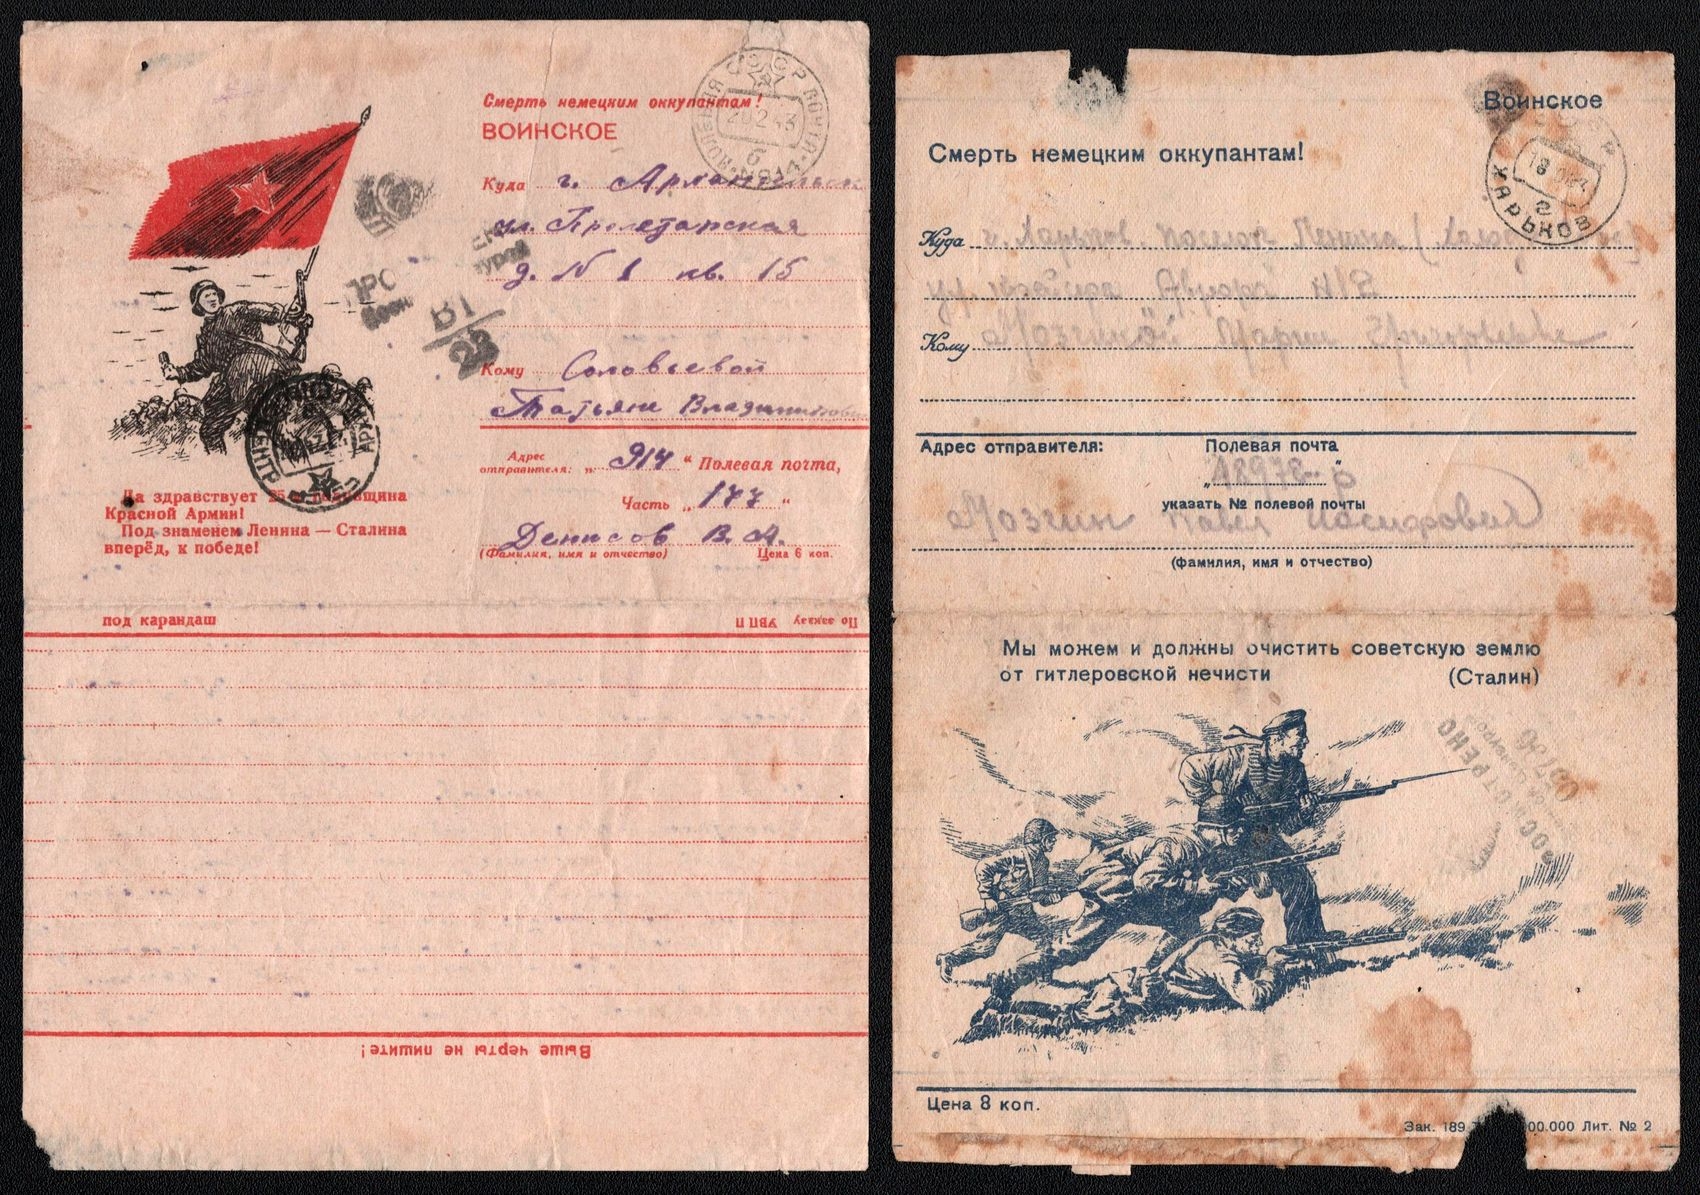 Смерть немецким оккупантам!
ВОИНСКОЕ
Куда г. Архангельск
ул. Пролетарская
д. N 1 кв. 15
Кому Соловьевой
Татьяне Владимировне
Адрес отправителя: „ 914 “ Полевая почта,
Часть „ 177 “
Денисов В. А.
(Фамилия, имя и отчество) Цена 6 коп.
Да здравствует 25-я годовщина
Красной Армии!
Под знаменем Ленина — Сталина
вперёд, к победе!
В1/23
СССР ПОЧТА
20 2 43
под карандаш
Выше черты не пишите!
Воинское
СССР
ХАРЬКОВ
Смерть немецким оккупантам!
Куда г. Харьков. поселок Ленина
ул. Крейсера Аврора
Кому Мозгиной Марии Григорьевне
Адрес отправителя: Полевая почта
„ 18978-р “
указать № полевой почты
Мозгин Павел Иосифович
(фамилия, имя и отчество)
Мы можем и должны очистить советскую землю
от гитлеровской нечисти (Сталин)
ПРОСМОТРЕНО
Цена 8 коп.
Зак. 189 000.000 Лит. № 2